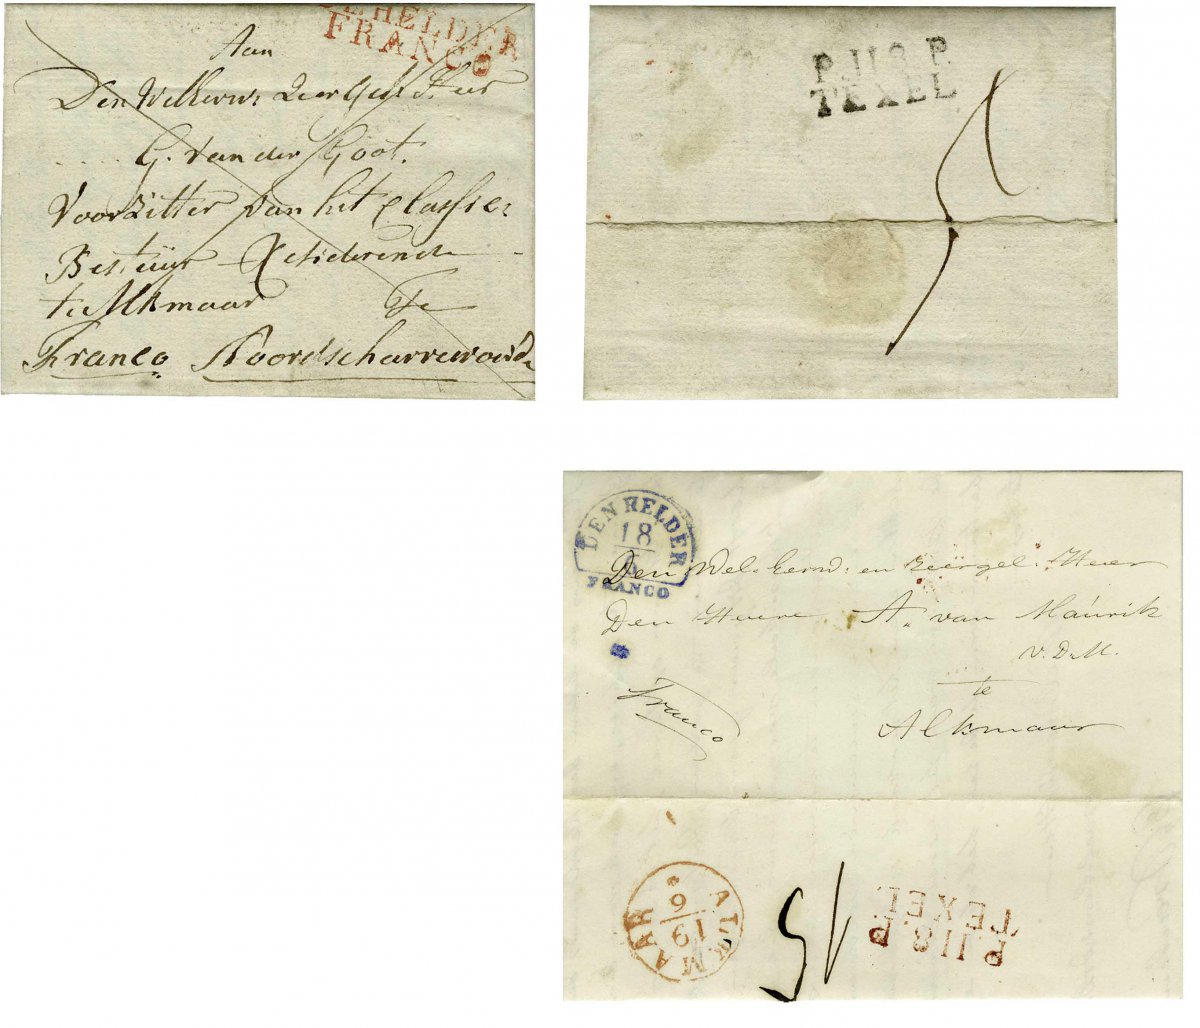 DE HELDER
FRANCO
Aan
Den WelEerw: Zeer Gel: Heer
G. van der Goot.
Voorzitter van het Classic:
Bestuur
te Alkmaar te
Franco Noordscharrewoude
P.118.P.
TEXEL
DEN HELDER
18
6
FRANCO
Den Wel.Eerw: en Zeergel. Heer
Den Heere A. van Maurik
v.D.M.
te
Franco
Alkmaar
ALKMAAR
19
6
P.118.P.
TEXEL